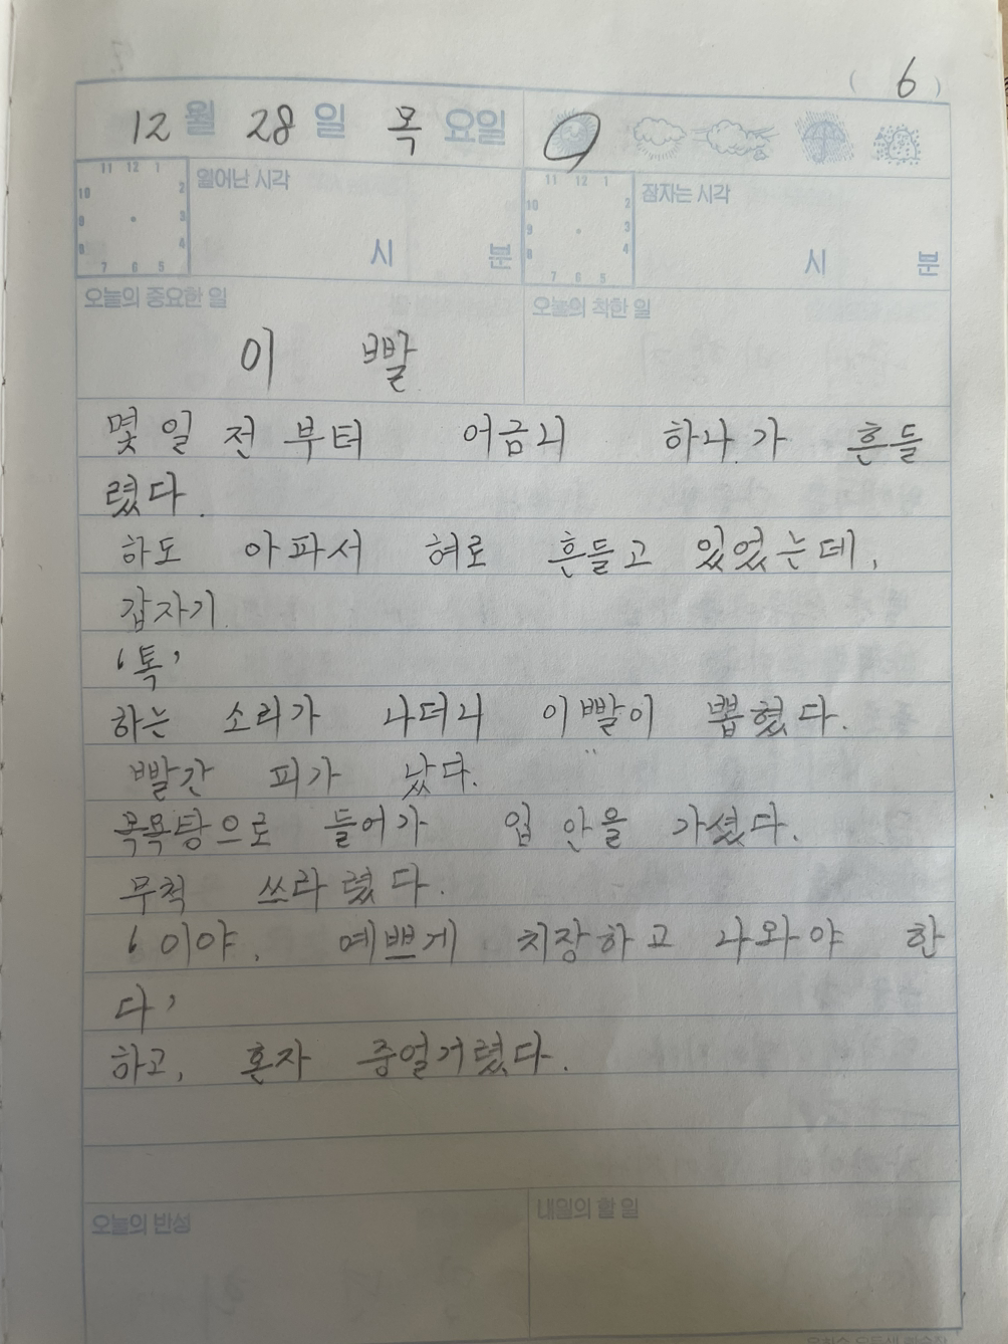 ( 6 )
12 월 28 일 목 요일
11 12 1
10 2
9 3
8 4
7 6 5
일어난 시각
시 분
11 12 1
10 2
9 3
8 4
7 6 5
잠자는 시각
시 분
오늘의 중요한 일
오늘의 착한 일
이 빨
몇 일 전 부터 어금니 하나가 흔들
렸다.
하도 아파서 혀로 흔들고 있었는데,
갑자기
'톡'
하는 소리가 나더니 이빨이 뽑혔다.
빨간 피가 났다.
목욕탕으로 들어가 입 안을 가셨다.
무척 쓰라렸다.
'이야, 예쁘게 치장하고 나와야 한
다'
하고, 혼자 중얼거렸다.
오늘의 반성
내일의 할 일